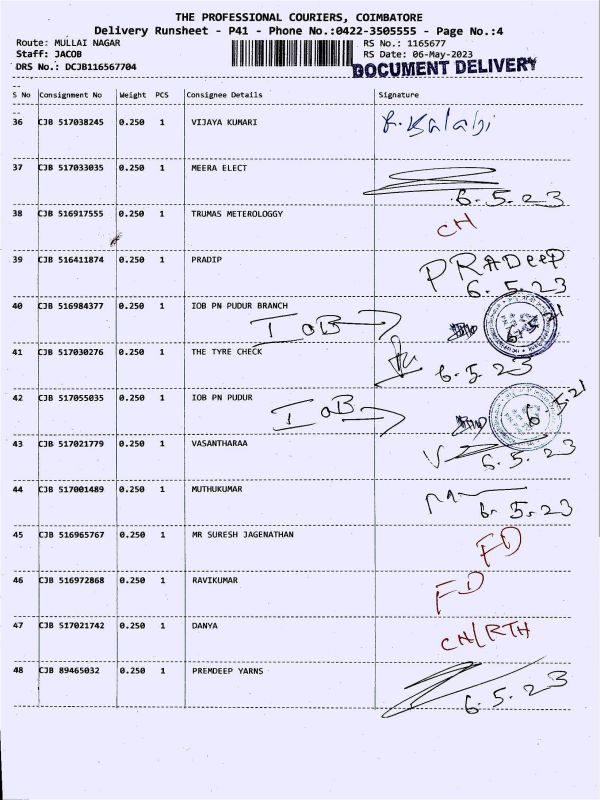 THE PROFESSIONAL COURIERS, COIMBATORE
Delivery Runsheet - P41 - Phone No.:0422-3505555 - Page No.:4
Route: MULLAI NAGAR RS No.: 1165677
Staff: JACOB RS Date: 06-May-2023
DRS No.: DCJB116567704 DOCUMENT DELIVERY
S No Consignment No Weight PCS Consignee Details Signature
36 CJB 517038245 0.250 1 VIJAYA KUMARI
37 CJB 517033035 0.250 1 MEERA ELECT 6.5.23
38 CJB 516917555 0.250 1 TRUMAS METEROLOGGY CH
39 CJB 516411874 0.250 1 PRADIP PRADeeP
6.5.23
40 CJB 516984377 0.250 1 IOB PN PUDUR BRANCH
IOB
41 CJB 517030276 0.250 1 THE TYRE CHECK 6.5.23
42 CJB 517055035 0.250 1 IOB PN PUDUR
IOB
43 CJB 517021779 0.250 1 VASANTHARAA 6.5.23
44 CJB 517001489 0.250 1 MUTHUKUMAR 6.5.23
45 CJB 516965767 0.250 1 MR SURESH JAGENATHAN FD
46 CJB 516972868 0.250 1 RAVIKUMAR FD
47 CJB 517021742 0.250 1 DANYA CH/RTH
48 CJB 89465032 0.250 1 PREMDEEP YARNS 6.5.23